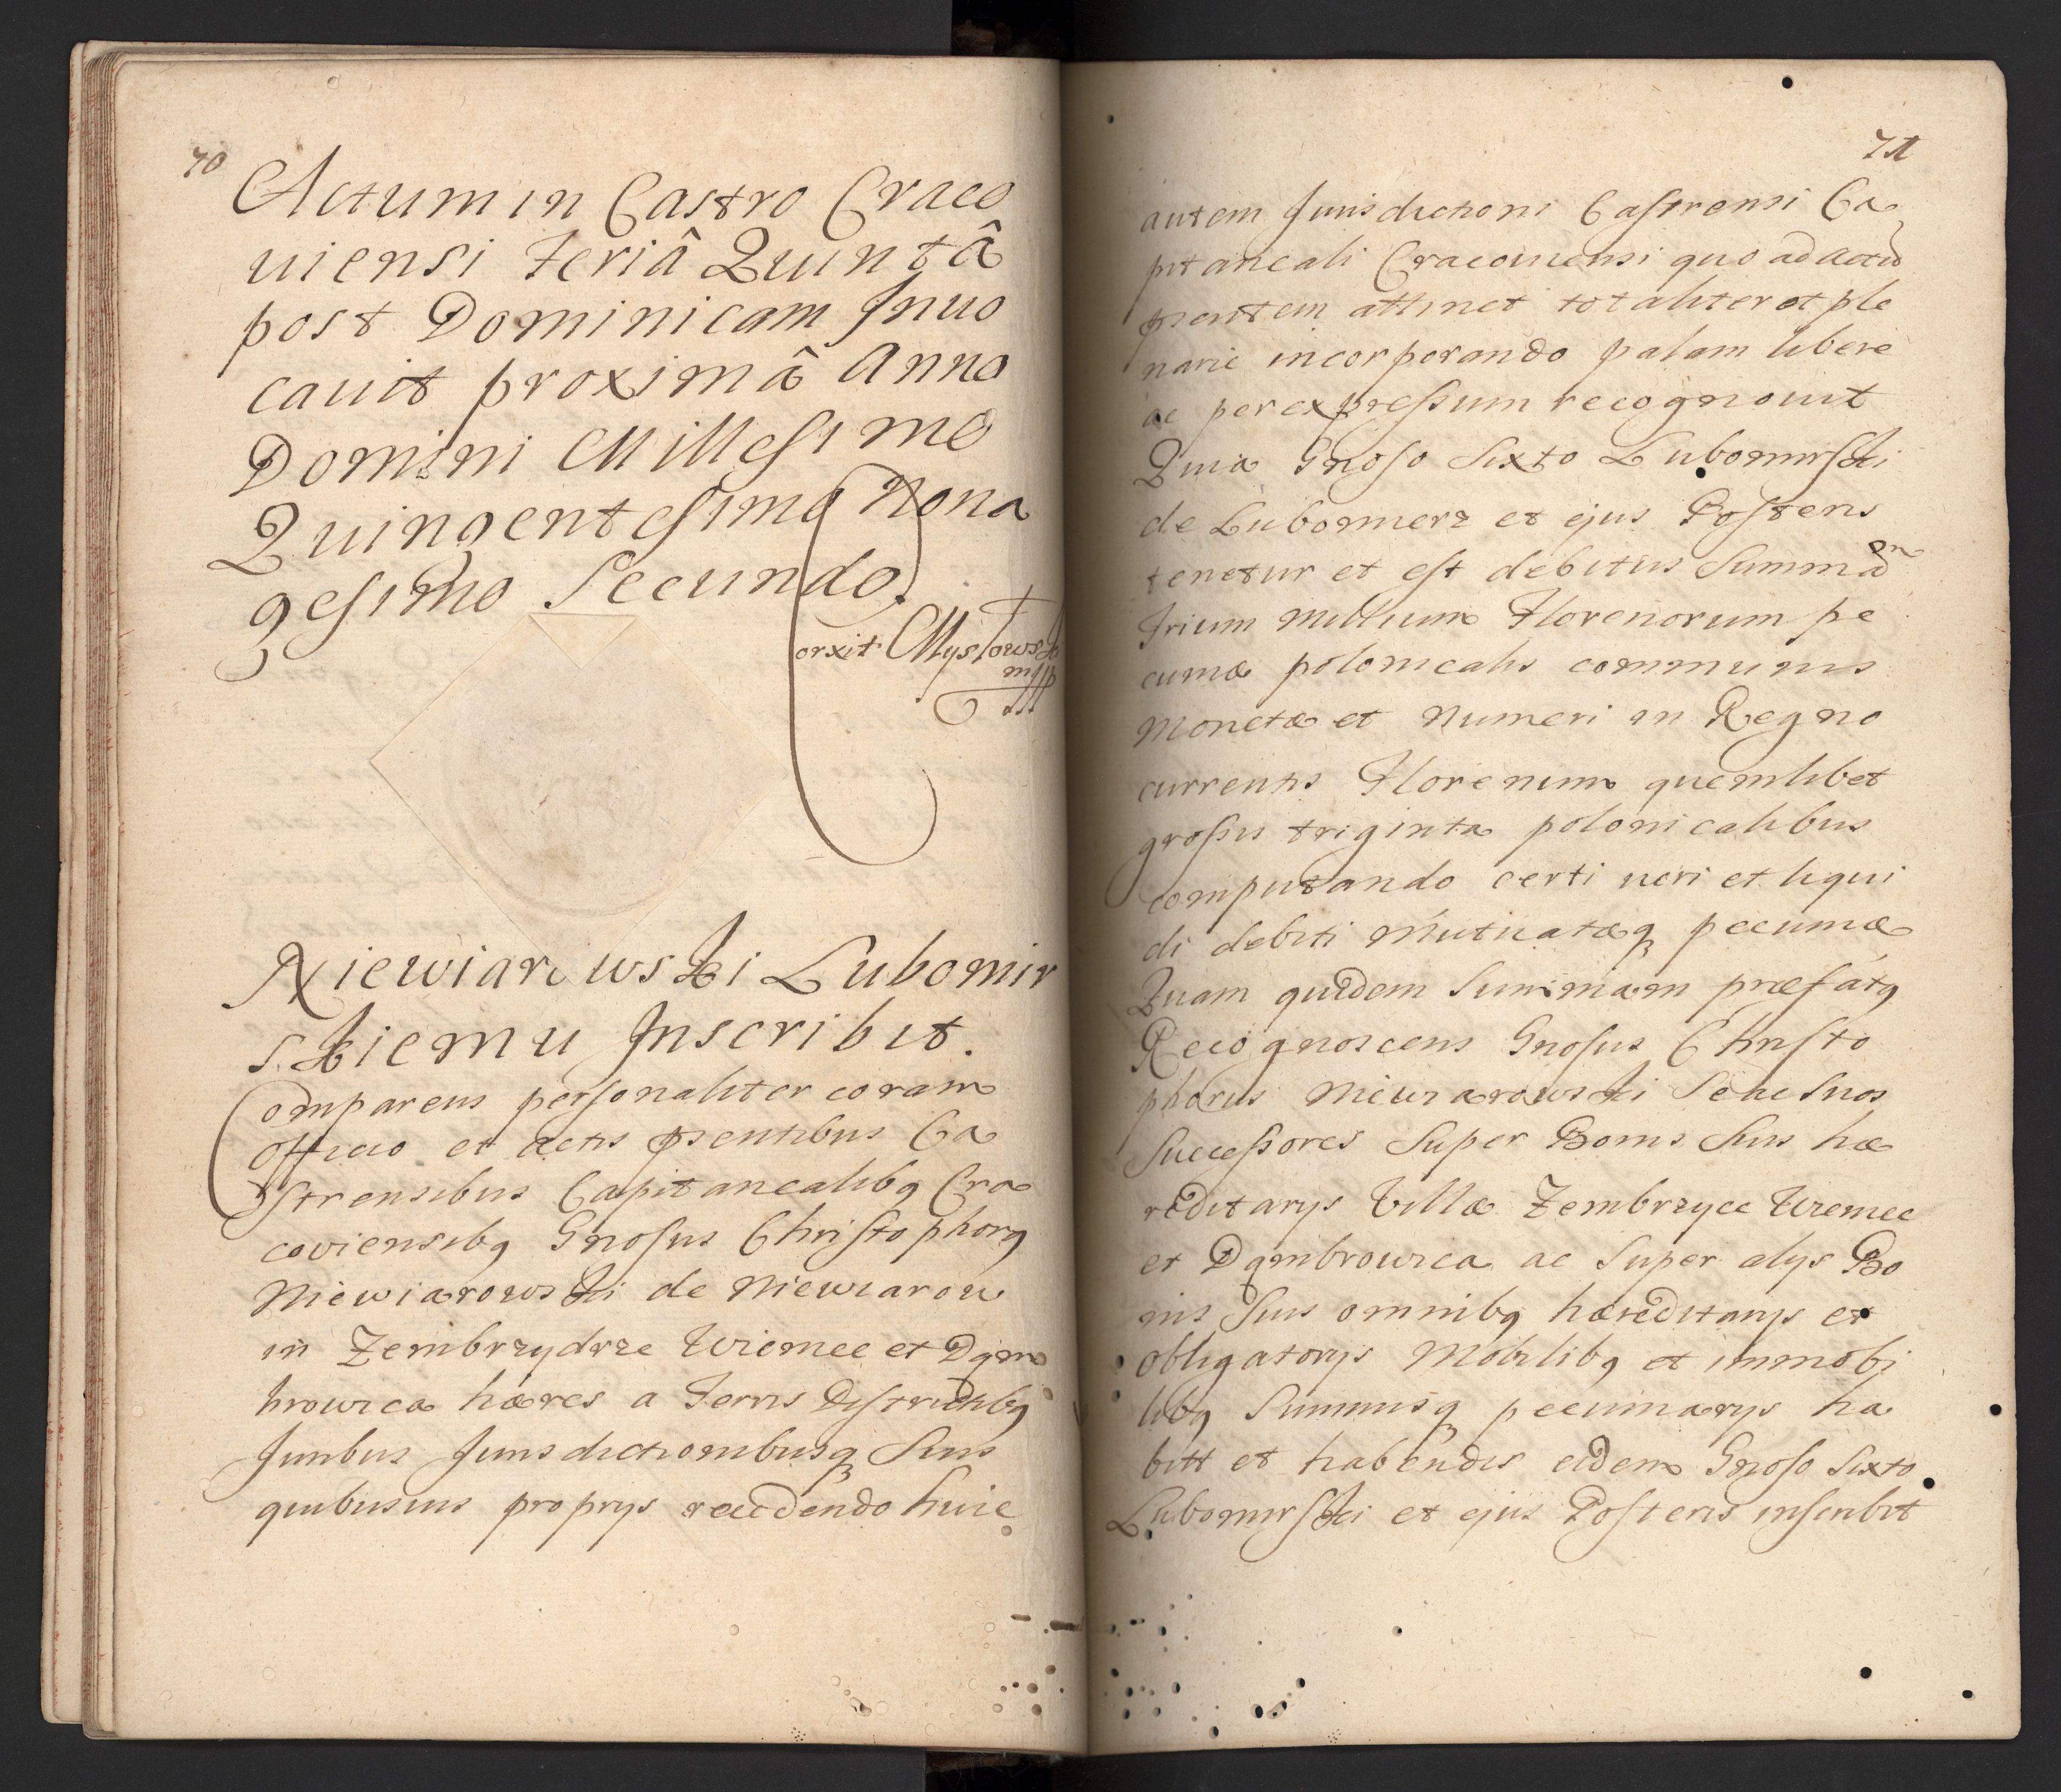 70
Actum in Castro Craco
uiensi Feriâ Quintâ
post Dominicam Inuo
cauit proximâ Anno
Domini Millesimo
Quingentesimo Nona
gesimo Secundo.
Corxit Mystowski
mpp
Niewiarowski Lubomir
skiemu Inscribit.
Comparens personaliter coram
Officio et actis psentibus Ca
strensibus Capitanealibq Cra
coviensibq Gnosus Christophorq
Niewiarowski de Niewiarow
in Zembrzydrze Wiemce et Dąm
browica hæres a Terris Districtibq
Juribus Jurisdictionibusq Suis
quibusuis proprys recedendo huic
71
autem Jurisdictioni Castrensi Ca
pitaneali Cracouiensi quo ad actũ
psentem attinet totaliter et ple
narie incorporando palam libere
ac per expressum recognouit
Quia Gnoso Sixto Lubomirski
de Lubomierz et ejus Posteris
tenetur et est debitus Summã
Trium Millium Florenorum pe
cuniæ polonicalis communis
Monetæ et Numeri in Regno
currentis Florenum quemlibet
grossis triginta polonicalibus
computando certi ueri et liqui
di debiti Mutuatæq pecuniæ
Quam quidem Summam præfatq
Recognoscens Gnosus Christo
phorus Niewiarowski Se ac Suos
Successores Super Bonis Suis hæ
reditarys Villæ Zembrzyce Wiemce
et Dąmbrowica ac Super alys Bo
nis Suis omnibq hæreditarys et
obligatorys Mobilibq et immobi
libq Summisq pecuniarys ha
bitt et habendis eidem Gnoso Sixto
Lubomirski et ejus Posteris inscribit